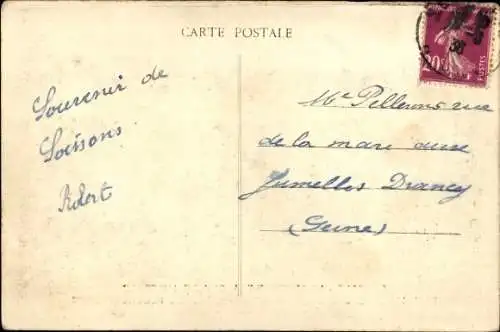 CARTE POSTALE
Souvenir de
Soissons
Robert
Mr Pellerons rue
de la mare aux
Jumelles Drancy
(Seine)
20c
POSTES
38